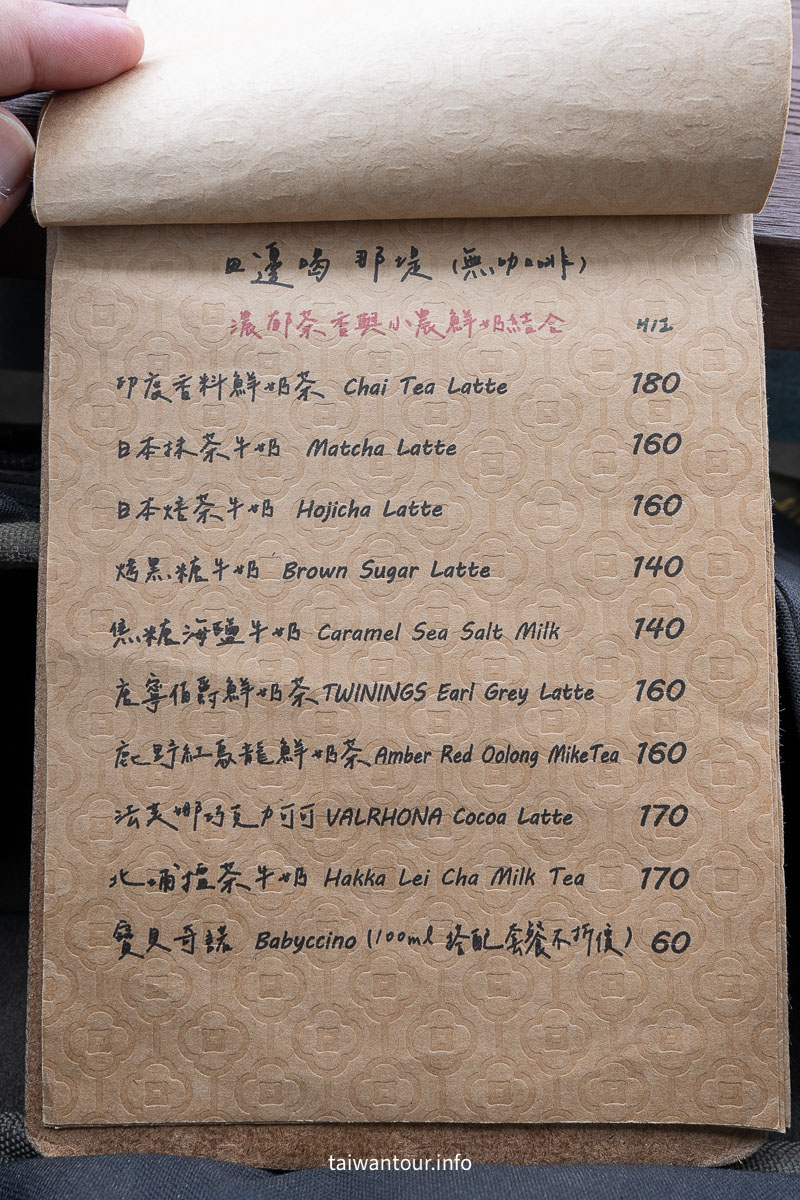 田邊喝 那堤 (無咖啡)
濃郁茶香與小農鮮奶結合 H/I
印度香料鮮奶茶 Chai Tea Latte 180
日本抹茶牛奶 Matcha Latte 160
日本焙茶牛奶 Hojicha Latte 160
烤黑糖牛奶 Brown Sugar Latte 140
焦糖海鹽牛奶 Caramel Sea Salt Milk 140
唐寧伯爵鮮奶茶 TWININGS Earl Grey Latte 160
鹿野紅烏龍鮮奶茶 Amber Red Oolong MikeTea 160
法芙娜巧克力可可 VALRHONA Cocoa Latte 170
北埔擂茶牛奶 Hakka Lei Cha Milk Tea 170
寶貝奇諾 Babyccino (100ml 搭配套餐不折價) 60
taiwantour.info